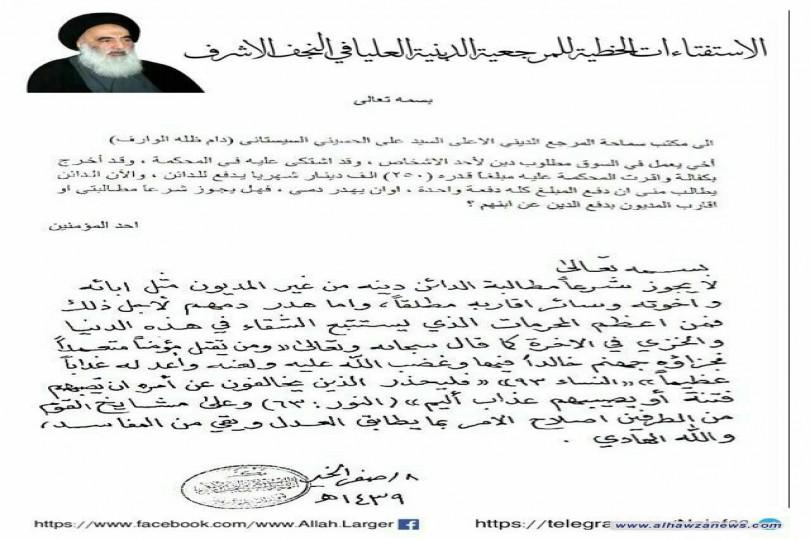 الاستفتاءات الخطية للمرجعية الدينية العليا في النجف الاشرف
بسمه تعالى
الى مكتب سماحة المرجع الديني الاعلى السيد علي الحسيني السيستاني (دام ظله الوارف)
أخي يعمل في السوق مطلوب دين لأحد الاشخاص ، وقد اشتكى عليه في المحكمة ، وقد أخرج
بكفالة واقرت المحكمة عليه مبلغا قدره (٢٥٠) الف دينار شهريا يدفع للدائن ، والآن الدائن
يطالب مني ان دفع المبلغ كله دفعة واحدة ، اوان يهدر دمي ، فهل يجوز شرعا مطالبتي او
اقارب المديون بدفع الدين عن ابنهم ؟
احد المؤمنين
بسمه تعالى
لا يجوز شرعاً مطالبة الدائن دينه من غير المديون مثل ابائه
و اخوته وسائر اقاربه مطلقاً، واما هدر دمهم لاجل ذلك
فمن اعظم المحرمات الذي يستتبع الشقاء في هذه الدنيا
والخزي في الاخرة كما قال سبحانه وتعالى «ومن يقتل مؤمناً متعمداً
فجزاؤه جهنم خالداً فيها وغضب الله عليه ولعنه وأعد له عذاباً
عظيماً» «النساء ٩٣» «فليحذر الذين يخالفون عن أمره ان تصيبهم
فتنة أو يصيبهم عذاب أليم» (النور: ٦٣) وعلى مشايخ القوم
من الطرفين اصلاح الامر بما يطابق العدل و يقي من المفاسد،
والله الهادي .
٨/صفر الخير
١٤٣٩هـ
https://www.facebook.com/www.Allah.Larger
https://telegra
www.alhawzanews.com